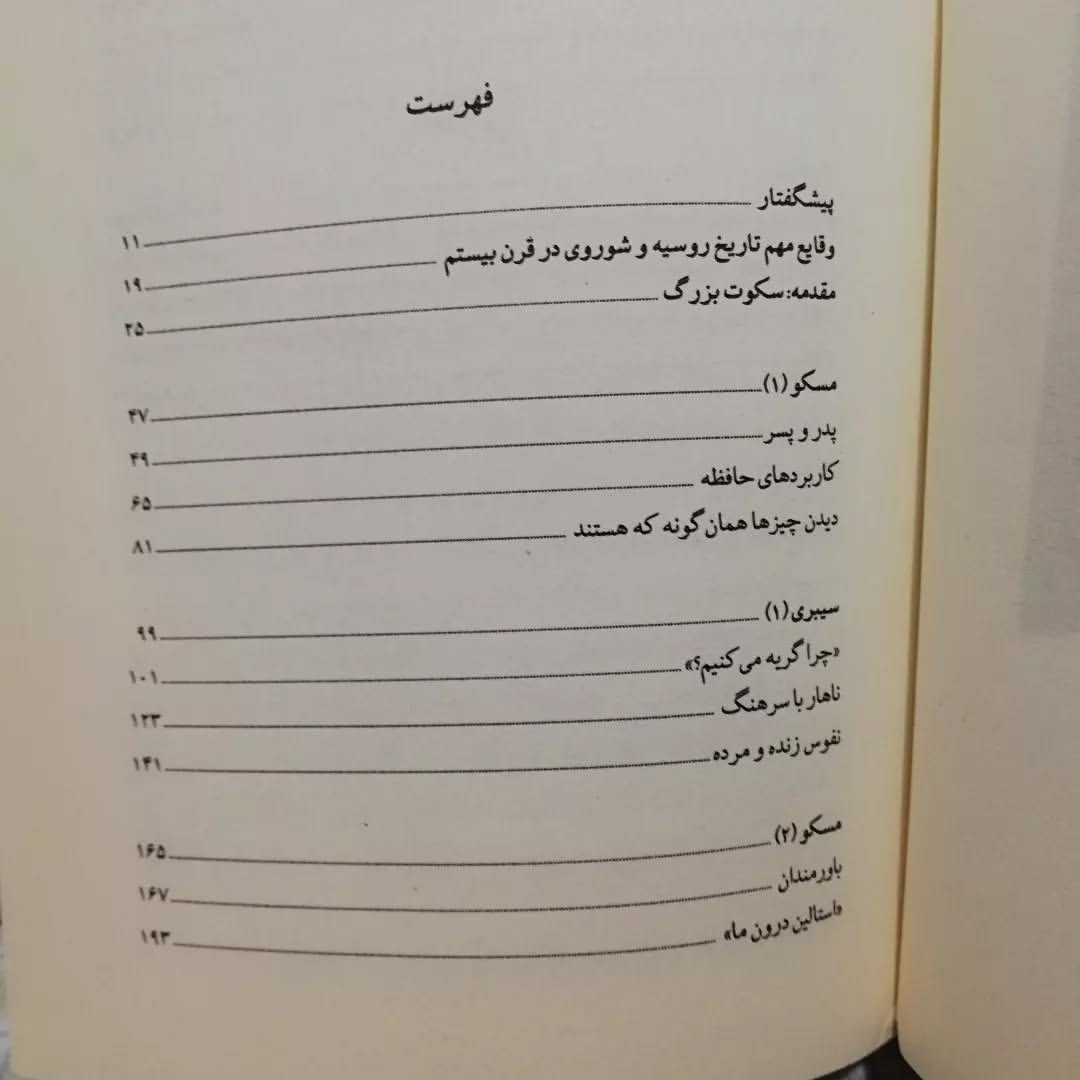 فهرست
پیشگفتار ۱۱
وقایع مهم تاریخ روسیه و شوروی در قرن بیستم ۱۹
مقدمه: سکوت بزرگ ۲۵
مسکو (۱) ۴۷
پدر و پسر ۴۹
کاربردهای حافظه ۶۵
دیدن چیزها همان‌گونه که هستند ۸۱
سیبری (۱) ۹۹
«چرا گریه می‌کنیم؟» ۱۰۱
ناهار با سرهنگ ۱۲۳
نفوس زنده و مرده ۱۴۱
مسکو (۲) ۱۶۵
باورمندان ۱۶۷
«استالین درون ما» ۱۹۳